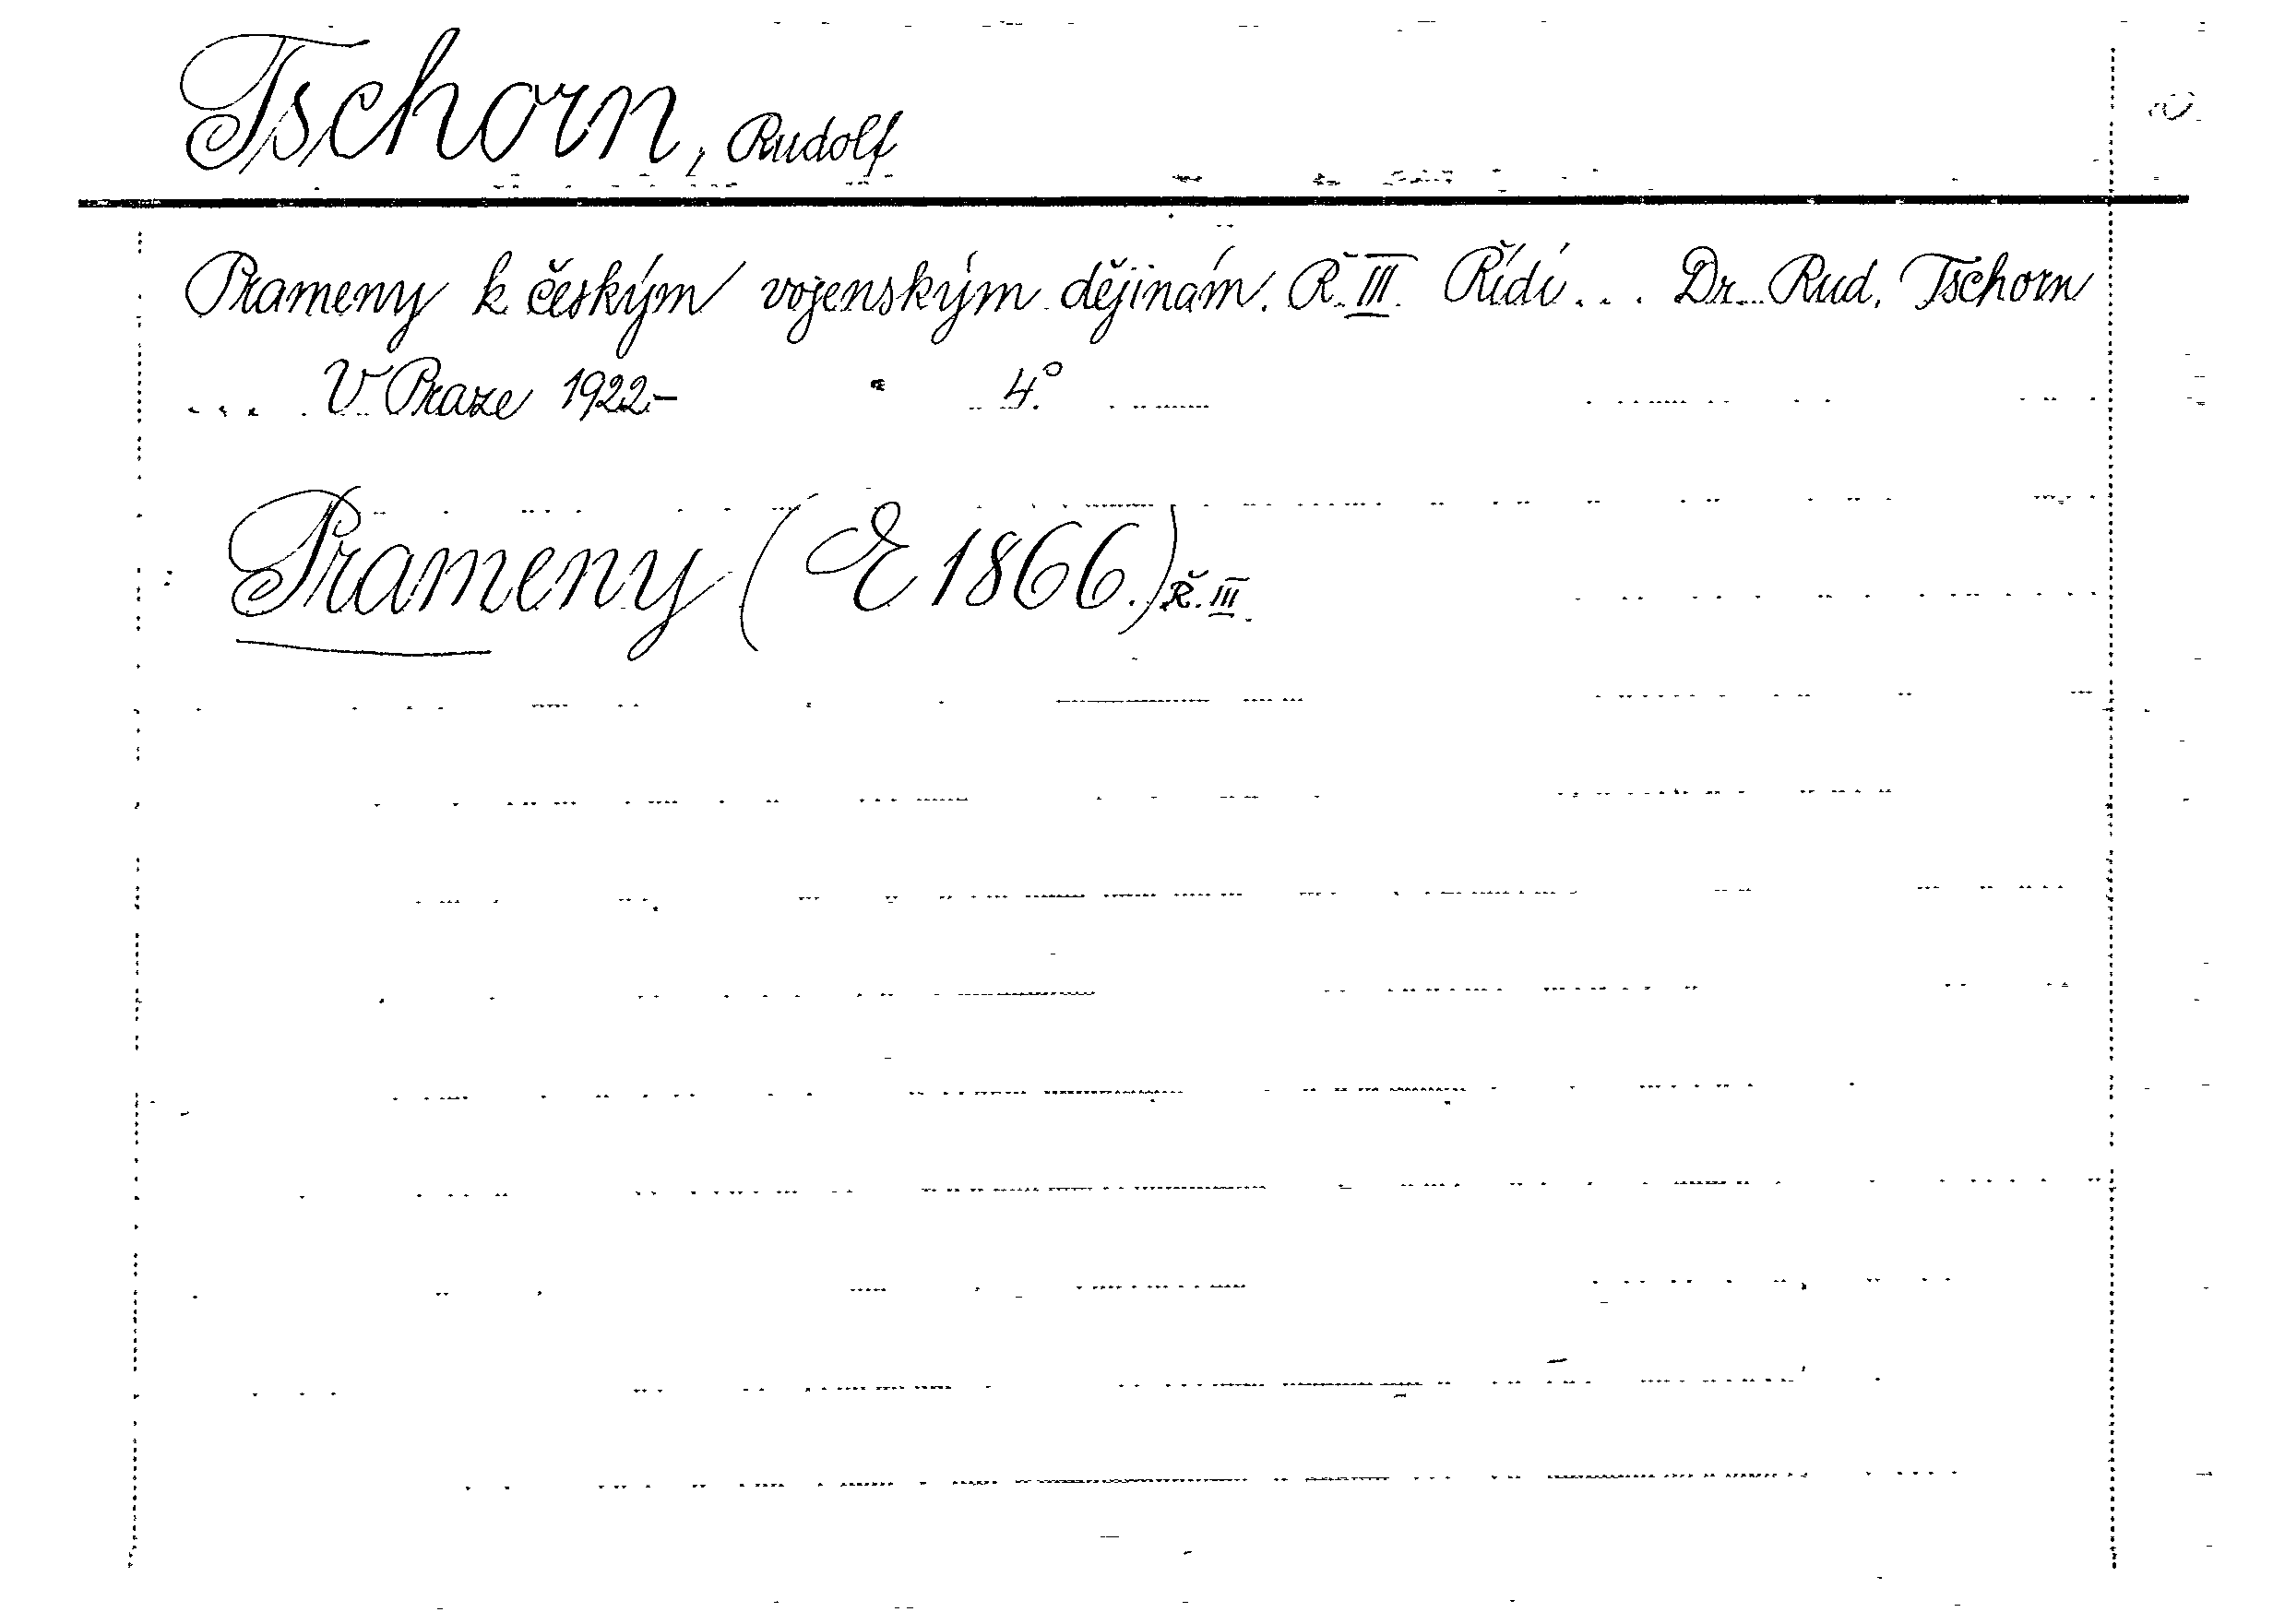 Tschorn, Rudolf
Prameny k českým vojenským dějinám. Ř. III. Řídí... Dr. Rud. Tschorn
... V Praze 1922.- 4°.
Prameny (E 1866.) Ř. III.